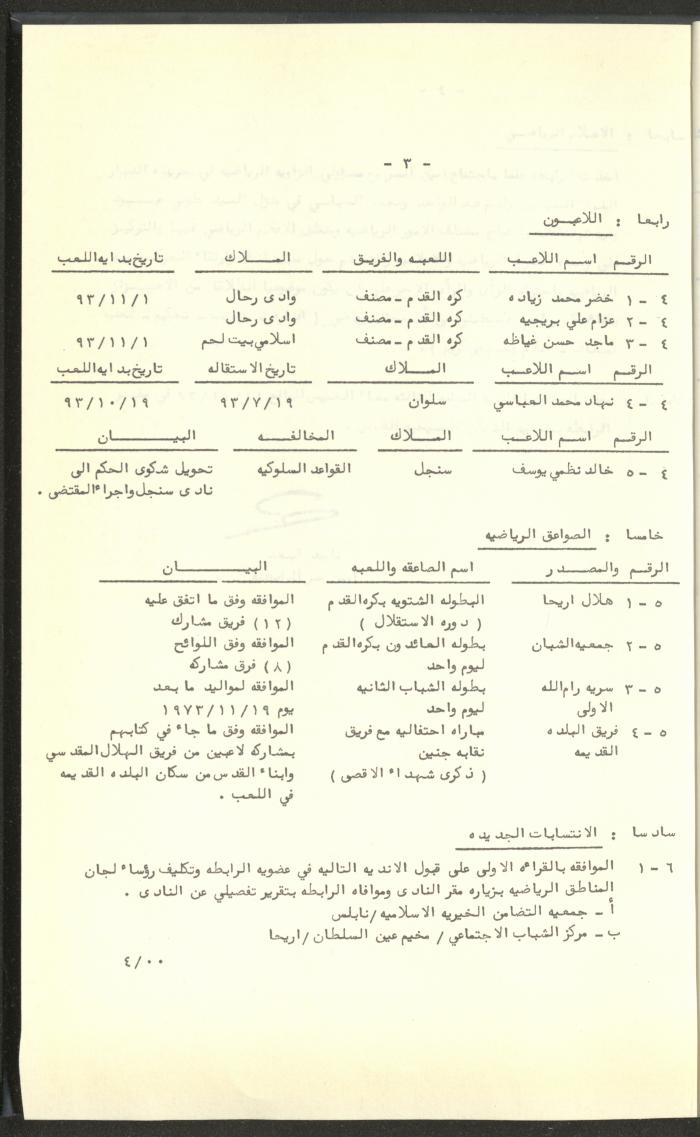 - ٣ -
رابعا : اللاعبون
الرقم اسم اللاعب اللعبه والفريق الملاك تاريخ بدايه اللعب
٤ - ١ خضر محمد زياده كره القدم - مصنف وادى رحال ٩٣/١١/١
٤ - ٢ عزام علي بريجيه كره القدم - مصنف وادى رحال
٤ - ٣ ماجد حسن غياظه كره القدم - مصنف اسلامي بيت لحم ٩٣/١١/١
الرقم اسم اللاعب الملاك تاريخ الاستقاله تاريخ بدايه اللعب
٤ - ٤ نهاد محمد العباسي سلوان ٩٣/٧/١٩ ٩٣/١٠/١٩
الرقم اسم اللاعب الملاك المخالفه البيان
٤ - ٥ خالد نظمي يوسف سنجل القواعد السلوكيه تحويل شكوى الحكم الى
نادى سنجل واجراء المقتضى .
خامسا : الصواعق الرياضيه
الرقم والمصدر اسم الصاعقه واللعبه البيان
٥ - ١ هلال اريحا البطوله الشتويه بكره القدم الموافقه وفق ما اتفق عليه
( دوره الاستقلال ) (١٢) فريق مشارك
٥ - ٢ جمعيه الشبان بطوله العائدون بكره القدم الموافقه وفق اللوائح
ليوم واحد (٨) فرق مشاركه
٥ - ٣ سريه رام الله بطوله الشباب الثانيه الموافقه لمواليد ما بعد
الاولى ليوم واحد يوم ١٩٧٣/١١/١٩
٥ - ٤ فريق البلده مباراه احتفاليه مع فريق الموافقه وفق ما جاء في كتابهم
القديمه نقابه جنين بمشاركه لاعبين من فريق الهلال المقدسي
( ذكرى شهداء الاقصى ) وابناء القدس من سكان البلده القديمه
في اللعب .
سادسا : الانتسابات الجديده
٦ - ١ الموافقه بالقراءه الاولى على قبول الانديه التاليه في عضويه الرابطه وتكليف رؤساء لجان
المناطق الرياضيه بزياره مقر النادى وموافاه الرابطه بتقرير تفصيلي عن النادى .
أ - جمعيه التضامن الخيريه الاسلاميه/نابلس
ب - مركز الشباب الاجتماعي / مخيم عين السلطان /اريحا
٤/٠٠